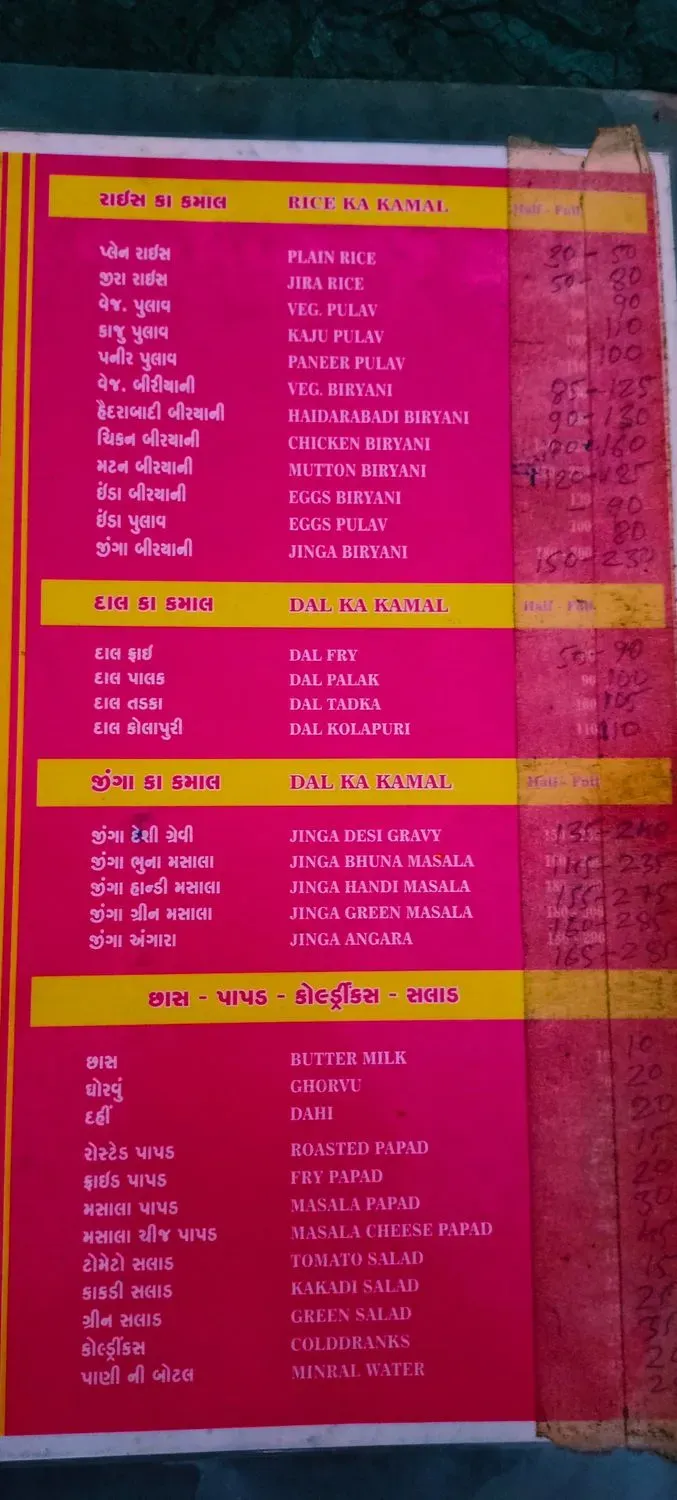 રાઈસ કા કમાલ RICE KA KAMAL Half - Full
પ્લેન રાઈસ PLAIN RICE 30 - 50
જીરા રાઈસ JIRA RICE 50 - 80
વેજ. પુલાવ VEG. PULAV 90
કાજુ પુલાવ KAJU PULAV 110
પનીર પુલાવ PANEER PULAV 100
વેજ. બીરીયાની VEG. BIRYANI 85-125
હૈદરાબાદી બીરયાની HAIDARABADI BIRYANI 90-130
ચિકન બીરયાની CHICKEN BIRYANI 160
મટન બીરયાની MUTTON BIRYANI 120-185
ઈંડા બીરયાની EGGS BIRYANI - 90
ઈંડા પુલાવ EGGS PULAV 80
જીંગા બીરયાની JINGA BIRYANI
દાલ કા કમાલ DAL KA KAMAL Half - Full
દાલ ફ્રાઈ DAL FRY 50-90
દાલ પાલક DAL PALAK 100
દાલ તડકા DAL TADKA 105
દાલ કોલાપુરી DAL KOLAPURI 110
જીંગા કા કમાલ DAL KA KAMAL Half - Full
જીંગા દેશી ગ્રેવી JINGA DESI GRAVY 135-240
જીંગા ભુના મસાલા JINGA BHUNA MASALA 145-235
જીંગા હાન્ડી મસાલા JINGA HANDI MASALA 155-275
જીંગા ગ્રીન મસાલા JINGA GREEN MASALA 160-285
જીંગા અંગારા JINGA ANGARA 165-285
છાસ - પાપડ - કોલ્ડ્રીંકસ - સલાડ
છાસ BUTTER MILK 10
ઘોરવું GHORVU 20
દહીં DAHI 20
રોસ્ટેડ પાપડ ROASTED PAPAD 15
ફ્રાઈડ પાપડ FRY PAPAD 20
મસાલા પાપડ MASALA PAPAD 30
મસાલા ચીજ પાપડ MASALA CHEESE PAPAD 45
ટોમેટો સલાડ TOMATO SALAD 15
કાકડી સલાડ KAKADI SALAD 25
ગ્રીન સલાડ GREEN SALAD 35
કોલ્ડ્રીંકસ COLDDRANKS
પાણી ની બોટલ MINRAL WATER